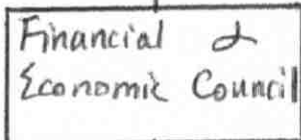 Financial &
Economic Council